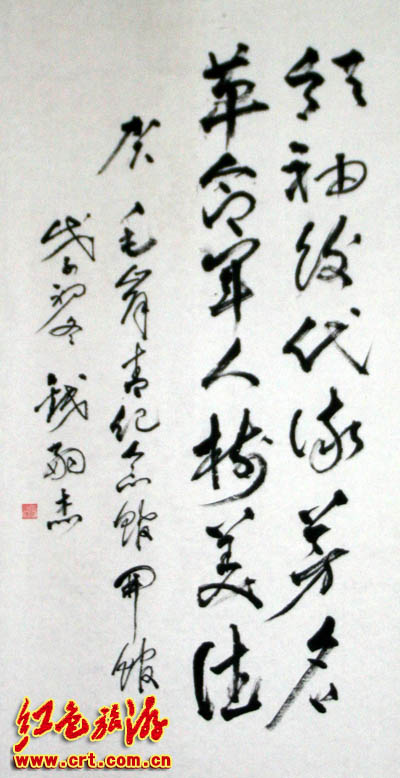 领袖後代流芳名
革命军人树美德
贺 毛岸青纪念馆开馆
戊子初冬 钱
红色旅游
www.crt.com.cn